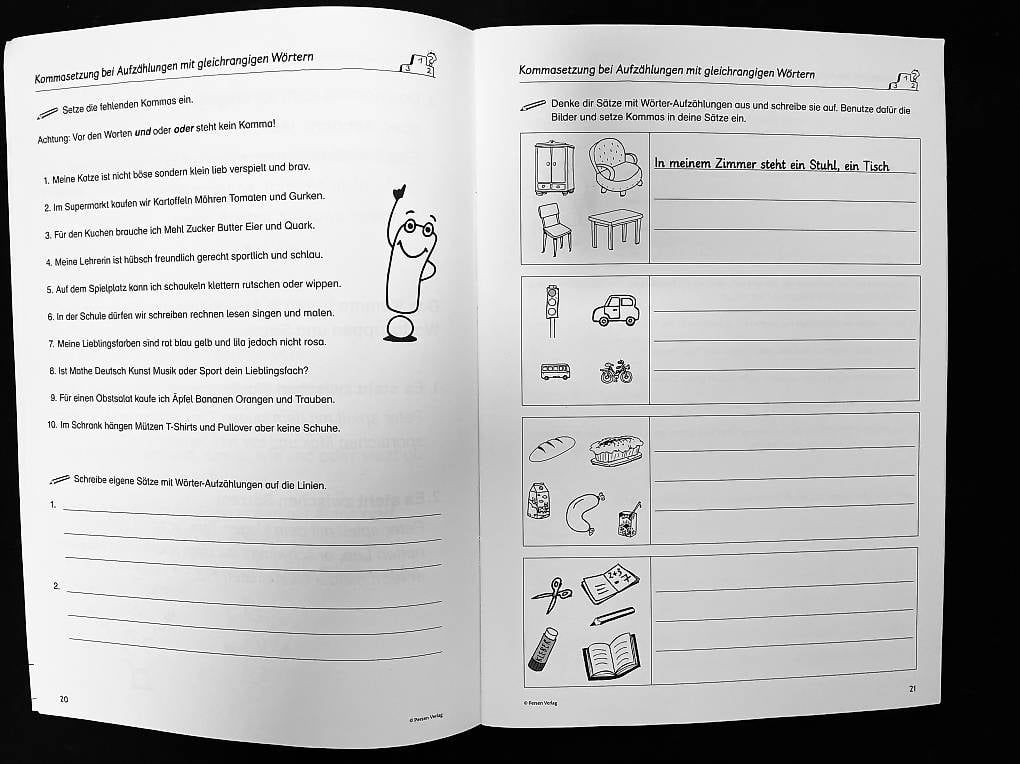 Kommasetzung bei Aufzählungen mit gleichrangigen Wörtern
Setze die fehlenden Kommas ein.
Achtung: Vor den Worten und oder oder steht kein Komma!
1. Meine Katze ist nicht böse sondern klein lieb verspielt und brav.
2. Im Supermarkt kaufen wir Kartoffeln Möhren Tomaten und Gurken.
3. Für den Kuchen brauche ich Mehl Zucker Butter Eier und Quark.
4. Meine Lehrerin ist hübsch freundlich gerecht sportlich und schlau.
5. Auf dem Spielplatz kann ich schaukeln klettern rutschen oder wippen.
6. In der Schule dürfen wir schreiben rechnen lesen singen und malen.
7. Meine Lieblingsfarben sind rot blau gelb und lila jedoch nicht rosa.
8. Ist Mathe Deutsch Kunst Musik oder Sport dein Lieblingsfach?
9. Für einen Obstsalat kaufe ich Äpfel Bananen Orangen und Trauben.
10. Im Schrank hängen Mützen T-Shirts und Pullover aber keine Schuhe.
Schreibe eigene Sätze mit Wörter-Aufzählungen auf die Linien.
1.
2.
20
© Persen Verlag
Kommasetzung bei Aufzählungen mit gleichrangigen Wörtern
Denke dir Sätze mit Wörter-Aufzählungen aus und schreibe sie auf. Benutze dafür die
Bilder und setze Kommas in deine Sätze ein.
In meinem Zimmer steht ein Stuhl, ein Tisch
KLEBER
21
© Persen Verlag